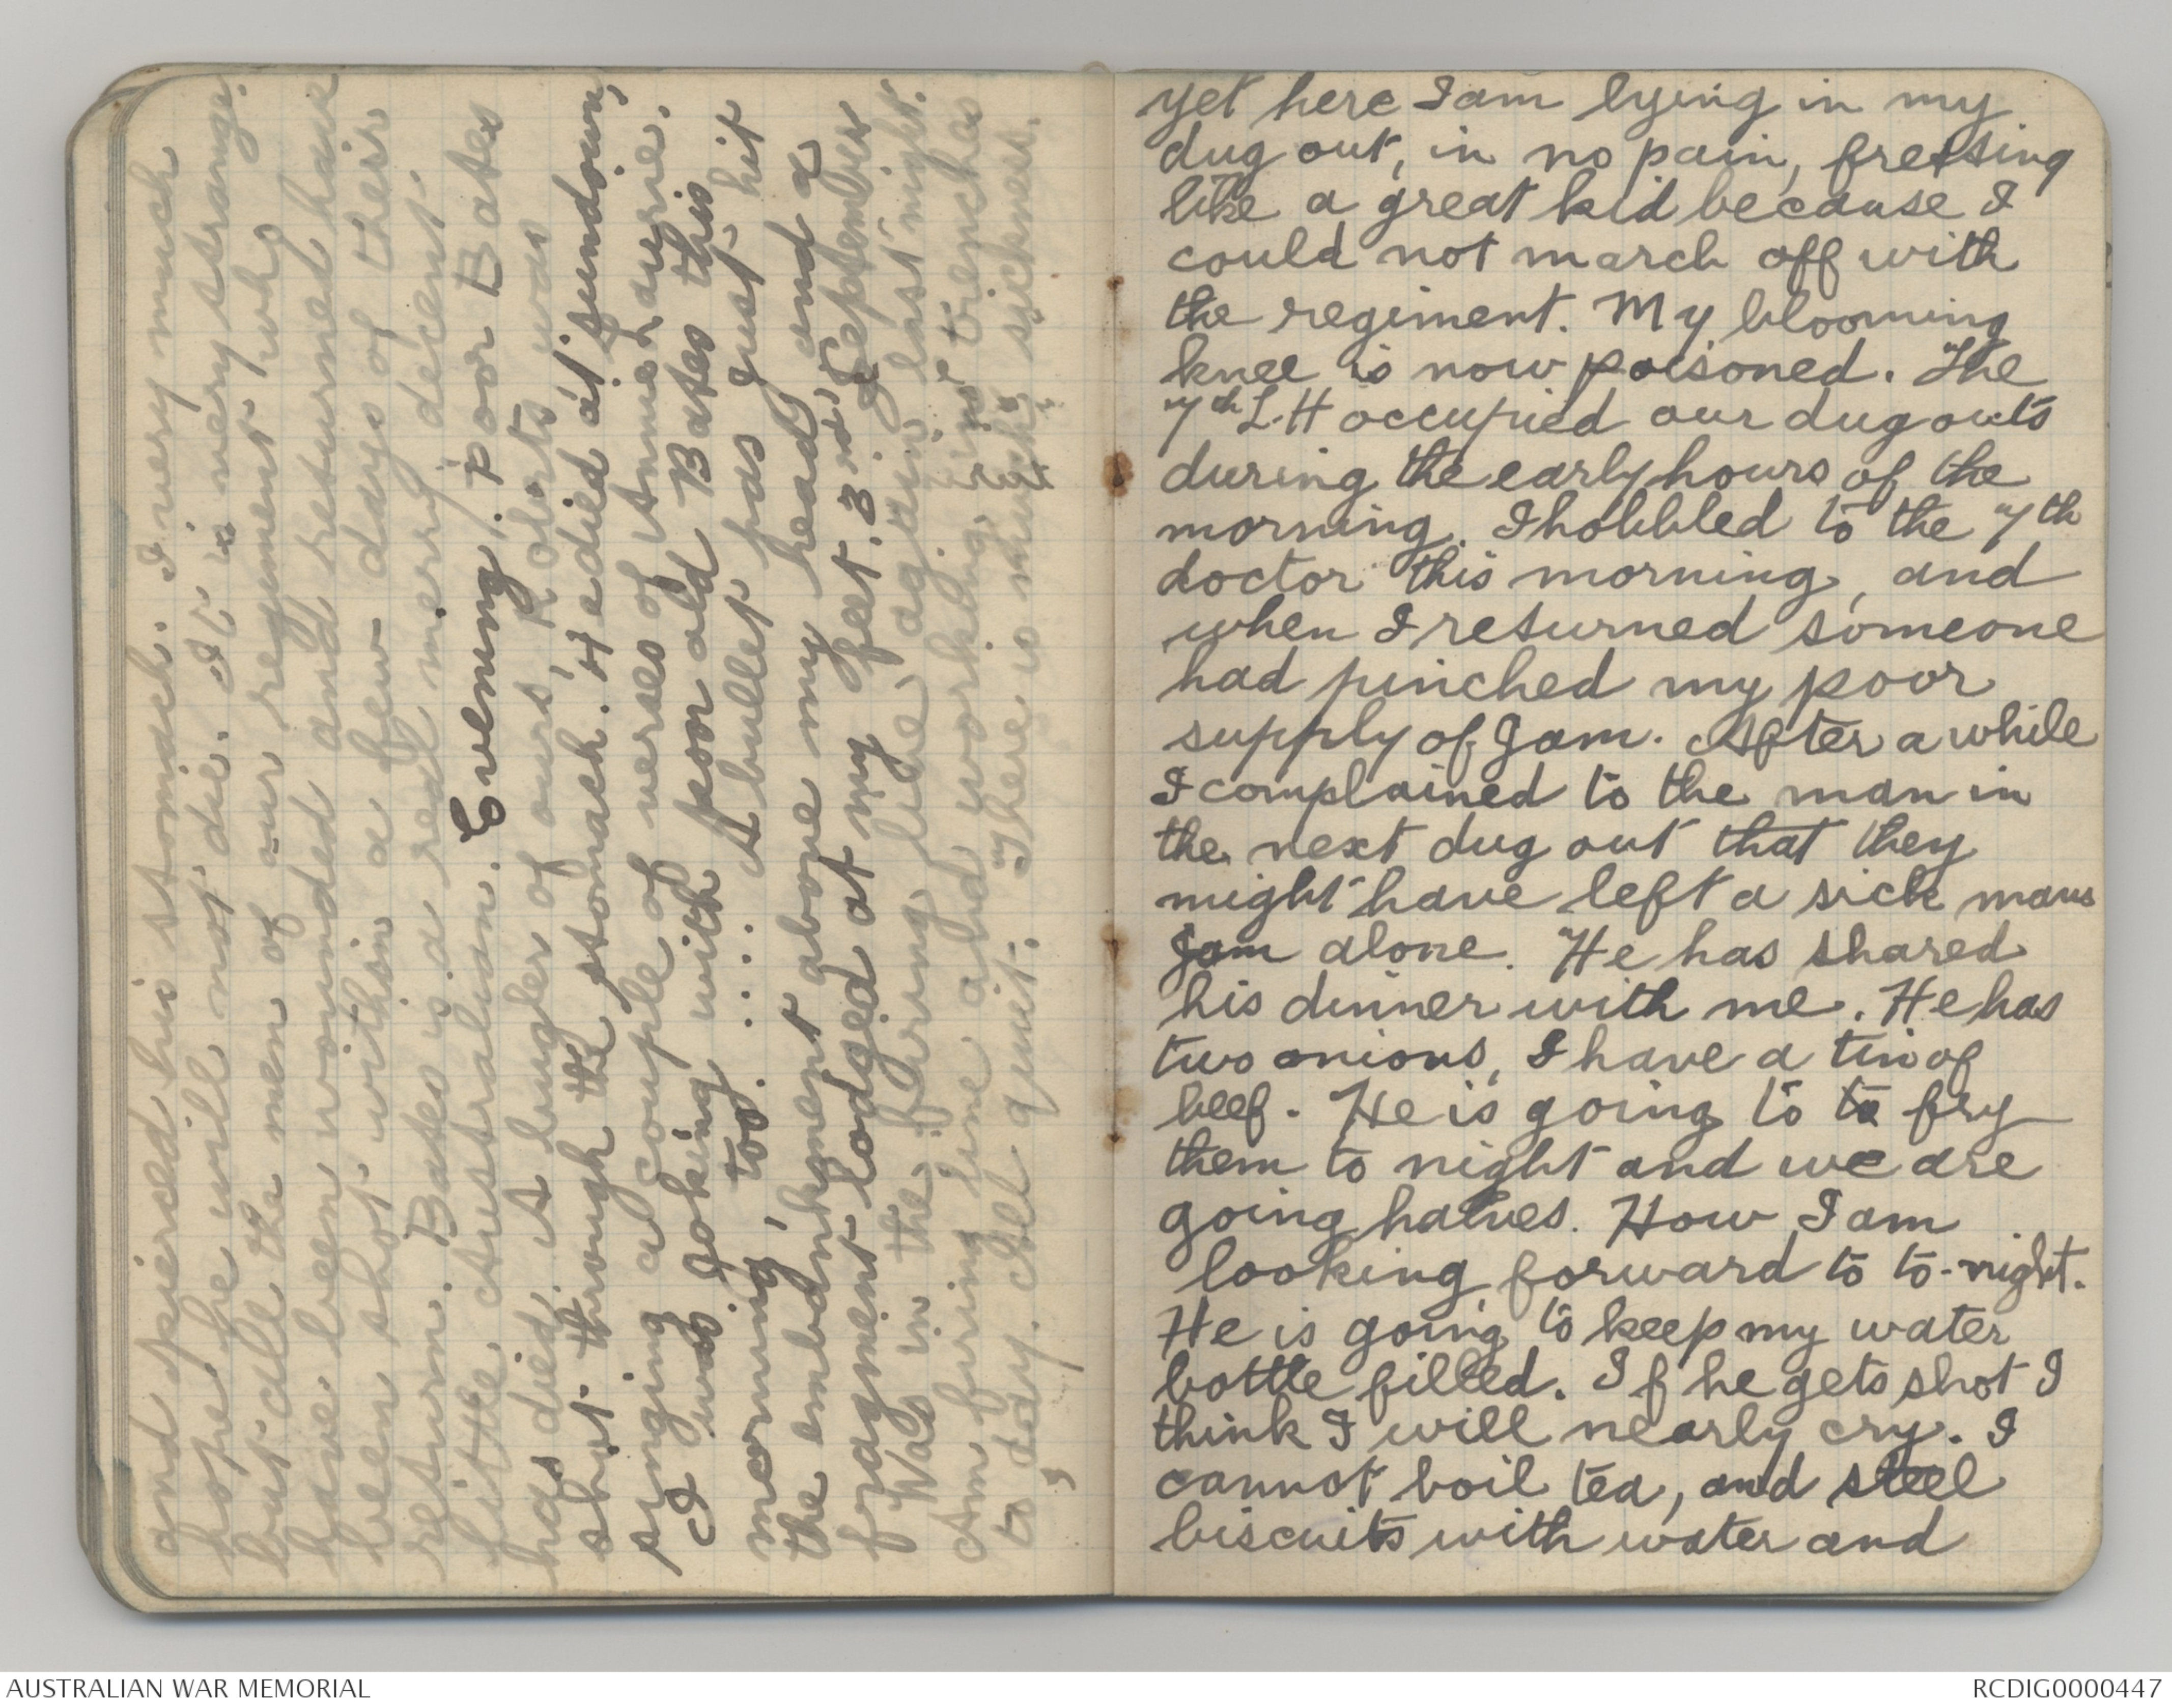 and pierced his stomach. I very much
hope he will not die. It is very strange.
but all the men of our regiment who
have been wounded and returned have
been shot within a few days of their
return. Bates is a real merry decent
little Australian. Evening. Poor Bates
has died. A bugler of ours, Roberts was
shot through the stomach. He died at sundown,
singing a couple of verses of Annie Laurie.
I was joking with poor old Bates this
morning, too. .... A bullet has just hit
the embankment above my head and a
fragment lodged at my feet. 3rd, September
Was in the firing line, again last night.
Am firing line and working in trenches
to day. All quiet. There is much sickness.
yet here I am lying in my
dug out, in no pain, fretting
like a great kid because I
could not march off with
the regiment. My blooming
knee is now poisoned. The
7th L.H occupied our dug outs
during the early hours of the
morning. I hobbled to the 7th
doctor this morning, and
when I returned someone
had pinched my poor
supply of Jam. After a while
I complained to the man in
the next dug out that they
might have left a sick mans
Jam alone. He has shared
his dinner with me. He has
two onions, I have a tin of
beef. He is going to to fry
them to night and we are
going halves. How I am
looking forward to to-night.
He is going to keep my water
bottle filled. If he gets shot I
think I will nearly cry. I
cannot boil tea, and steel
biscuits with water and
AUSTRALIAN WAR MEMORIAL
RCDIG0000447